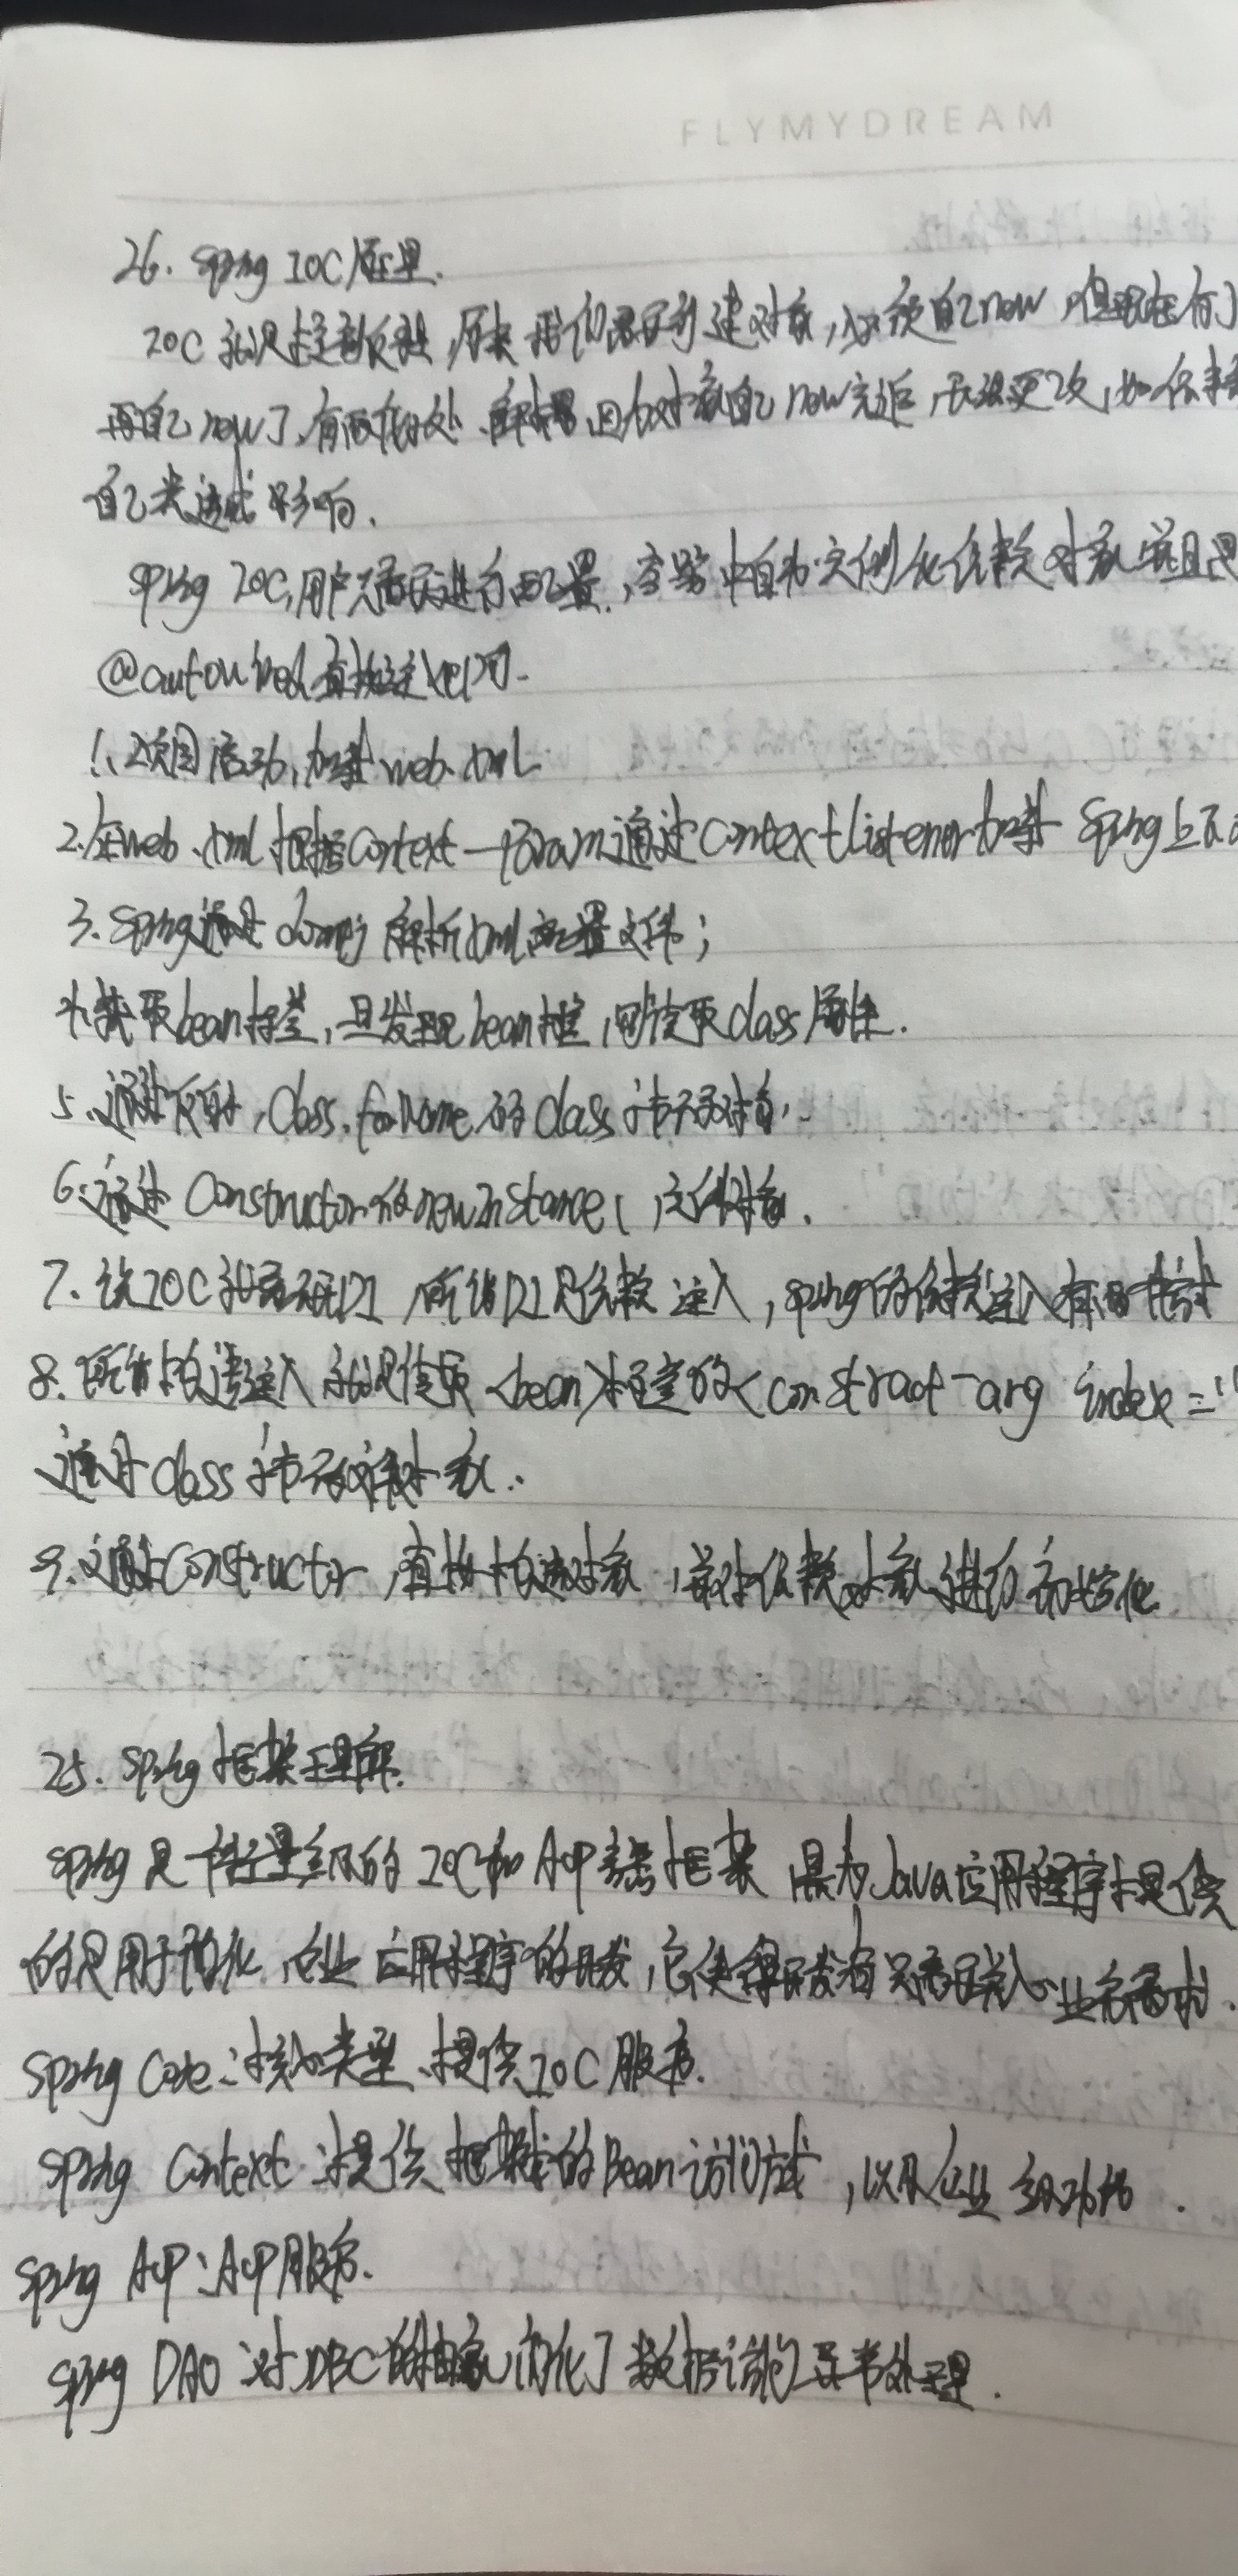 FLYMYDREAM
26. Spring IOC原理.
IOC就是控制反转,原来我们需要创建对象,必须自己new,但现在有
再自己new了,有两个好处、解耦,因为对象自己new完后,无法更改,如依
自己类造成影响.
Spring IOC,用户只需要进行配置,容器中自动实例化依赖对象并且是
@autowired直接注入即可.
1、项目启动,加载web.xml
2.在web.xml 根据Context-param通过ContextListener加载 Spring上下文
3.Spring通过dom4j解析xml配置文件;
4.获取bean标签,且发现bean标签,则读取class属性.
5.通过反射,Class.forName的class字节码对象.
6.通过Constructor的newInstance(,实例对象.
7.说IOC就需说DI,所谓DI是依赖注入,Spring的依赖注入有两种方式
8.所谓构造注入就是读取<bean>标签的<constract-arg index="
通过class字节码对象.
9.通过Constructor,直接构造对象,并对依赖对象进行初始化
25. Spring框架理解.
Spring是一个轻量级的IOC和AOP容器框架 是为Java应用程序提供
的是用于简化企业应用程序的开发,它使得开发者只需要关心业务需求.
Spring Core:核心类型、提供IOC服务.
Spring Context:提供框架式的Bean访问方式,以及企业级功能.
Spring AOP:AOP服务.
Spring DAO:对JDBC的抽象,简化了数据访问异常处理.